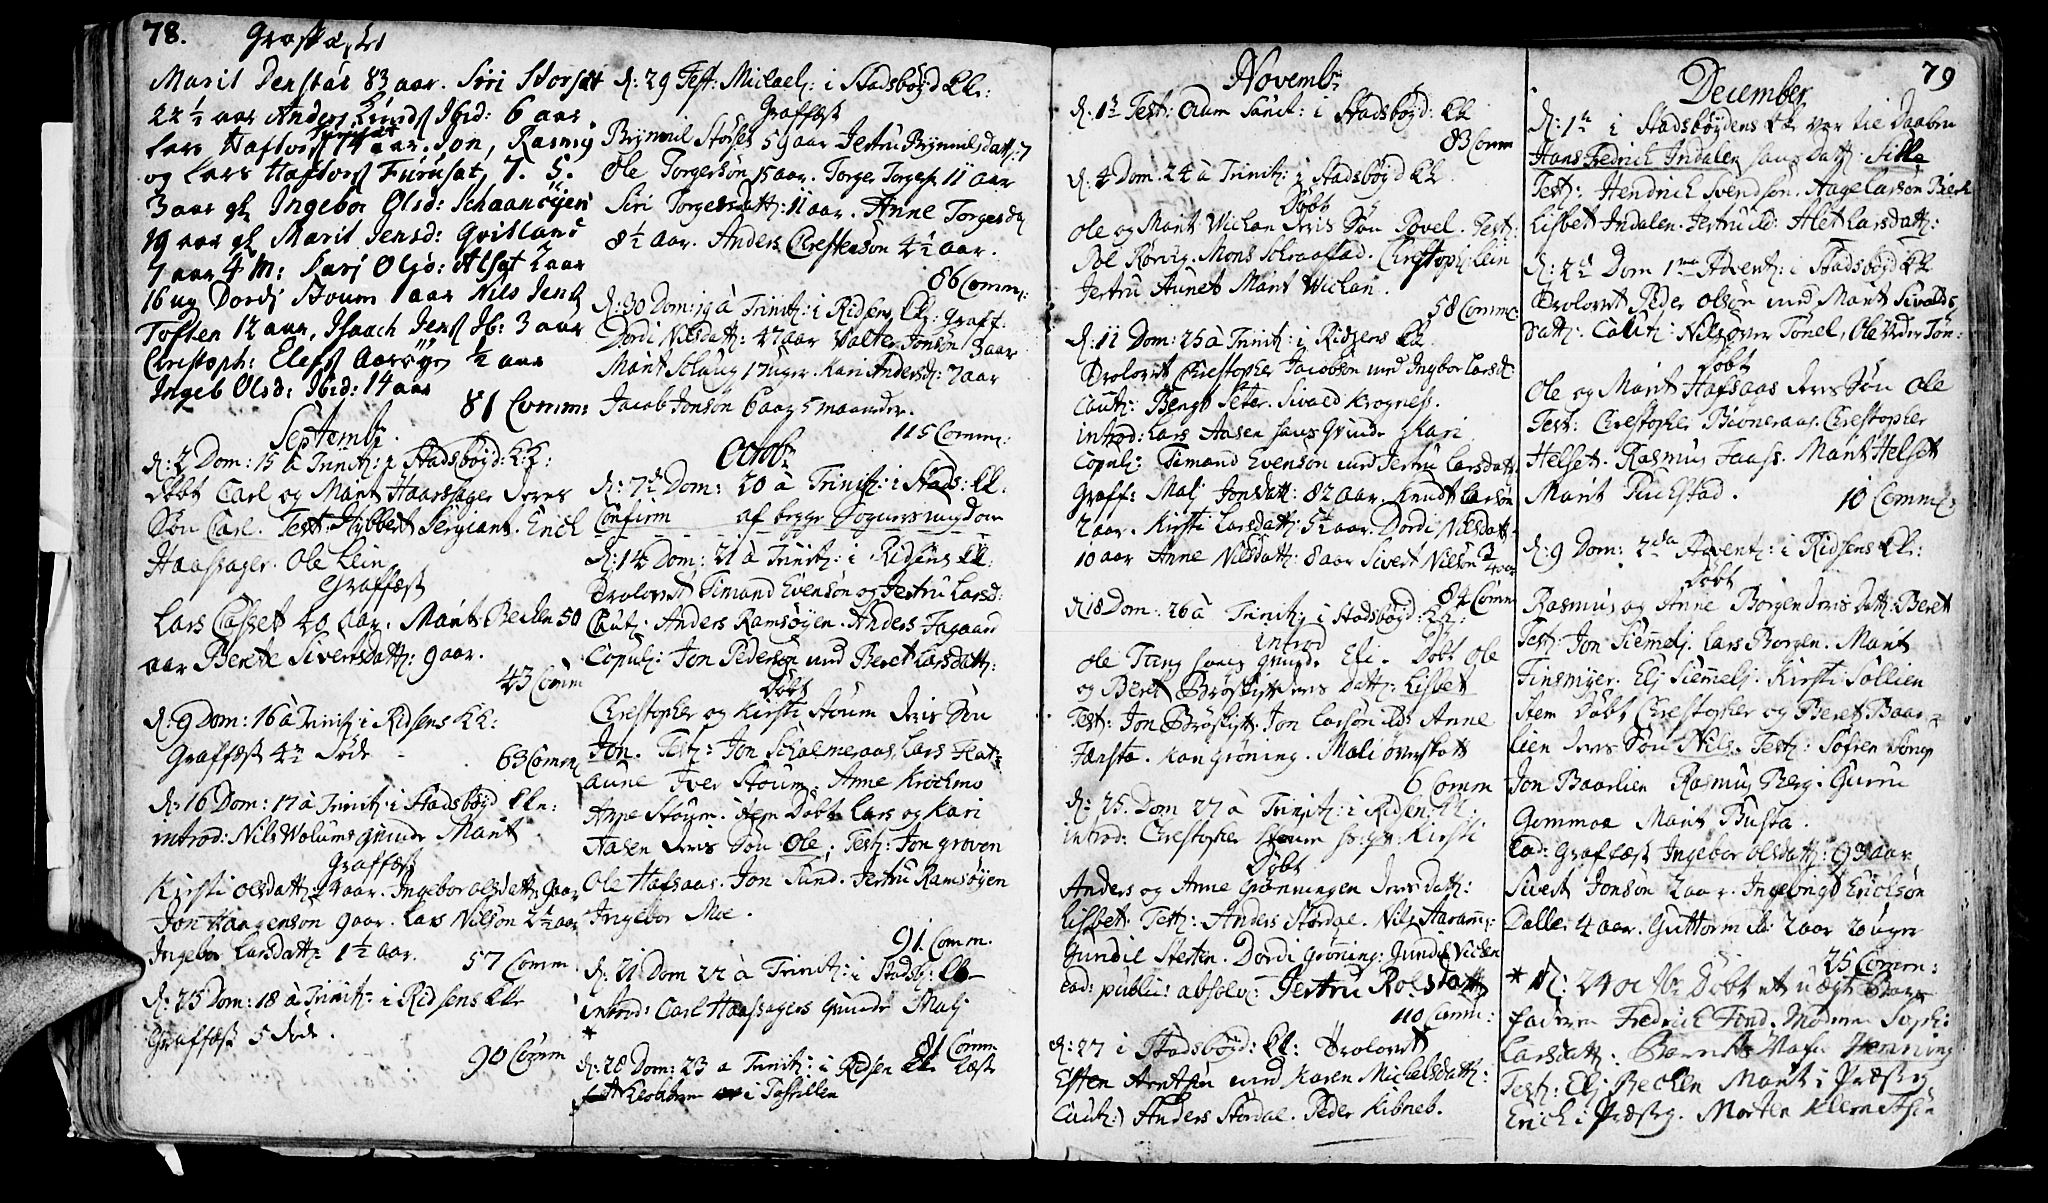 78.
Graffæstet
Marit Denstad 83 aar. Siri Storsæt
22 1/2 aar Anders Lunds Ibid: 6 aar.
Lars Hafvors 14 aar. Jon, Rasmus
og Lars Hafvors Furusæt, 7. 5.
3 aar gl Ingebor Olsd: Schaanøyen
19 aar gl Marit Jensd:
7 aar 4 M: Kari Olsd: Alset 2 aar
16 ug Dordi Stoum 1 aar Nils Jens
Toften 12 aar, Isaach Jens Ib: 3 aar
Christoph: Eless 1/2 aar
Ingeb Olsd: Ibid: 14 aar
81 Comm:
Septemb:
d: 2 Dom: 15 à Trinit: i Stadsbøyd: K:
Døbt Carl og Marit Haarsager deres
Søn Carl. Test: Hybbert Sergiant. Erich
Haassager. Ole Lein
Graffæst
Lars Casset 40 aar. Marit Becken 50
aar Berette Sivertsdatt: 9 aar.
43 Comm
d: 9 Dom: 16 à Trinit: i Ridsens K:
Graffæst 4re Døde
63 Comm
d: 16 Dom: 17 à Trinit: i Stadsbøyd
introd: Nils Wolums quinde Marit
Graffæst
Kirsti Olsdatt: aar. Ingebor Olsdatt: 9 aar
Jon Haagenson 9 aar. Lars Nilson 2 1/2 aar
Ingebor Larsdatt: 1 1/2 aar.
57 Comm
d: 23 Dom: 18 à Trinit: i Ridsens
Graffæst 5 døde.
90 Comm
d: 29 Fest: Michael: i Stadsbøyd
Graffæst
Brynnil Storset 59 aar Jertru Brynnilsdatt: 7
Ole Torgerson 15 aar. Torger Torgers 11 aar
Siri Torgersdatt: 11 aar. Anne Torgersd
8 1/2 aar. Anders Christenson 4 1/2 aar.
86 Comm:
d: 30 Dom: 19 à Trinit: i Ridsens K: Graff:
Dordi Nilsdatt: 47 aar Walter Jonson 3 aar
Marit Solaug 17 uger. Kari Andersd: 7 aar
Jacob Jonson 6 aar 5 maaneder.
115 Comm:
Octobr
d: 7de Dom: 20 à Trinit: i Stads: K:
Confirm af begge Sognes ungdom
d: 14 Dom: 21 à Trinit: i Ridsens K:
Trolovet Simand Evenson og Jertru Larsd:
Caut: Anders Ramsøyen. Anders Fagaard
Copul: Jon Pedersen med Beret Larsdatt:
Døbt
Christopher og Kirsti Stoum deres Søn
Jon. Test: Jon Schalmeraas, Lars Flat=
aune Iver Stoum. Anne Krockmo
Anne Stoum. item Døbt Lars og Kari
Aasen deres Søn Ole. Test: Jon Groven
Ole Hafsaas. Jon Sund. Jertru Ramsøyen
Ingebor Moe.
91 Comm.
d: 21 Dom 22 à Trinit: i Stadsb:
introd: Carl Haassagers quinde Marit
*
81 Comm
d: 28 Dom: 23 a Trinit: i Ridsen K: læst
i Tafvellen
Novemb:
d: 1te Fest: Oium Sanct: i Stadsbøyd: K
83 Comm
d: 4 Dom. 24 à Trinit: i Stadsbøyd K.
Døbt
Ole og Marit Wichan deres Søn Povel. Test:
Rørvig. Mons Schraastad. Christoph: Lein
Jertru Aunet Marit Wichan.
58 Comm:
d: 11 Dom: 25 à Trinit: i Ridsens K.
Trolovet Christopher Jacobson med Ingebor Larsd:
Caut: Bengt Seter. Sivald Krogness.
introd: Lars Aasen hans quinde Kari
Copul: Simand Evenson med Jertru Larsdatt:
Graff: Mali Jonsdatt: 82 aar. Knudt Larson
2 aar. Kirsti Larsdatt: 5 1/2 aar. Dordi Nilsdatt
10 aar Anne Nilsdatt: 8 aar Sivert Nilson
84 Comm
d: 18 Dom: 26 à Trinit: i Stadsbøyd: K:
introd
Ole Tung hans quinde Eli. Døbt Ole
og Beret Brøskift deres datt: Lisbet
Test: Jon Brøskift. Jon Larson ibd: Anne
Fænsta. Kari Grøning. Mali Øverskott
6 Comm
d: 25. Dom 27 à Trinit: i Ridsen K:
introd: Christopher Stoum hs: qv: Kirsti
Døbt
Anders og Anne Grønningen deres datt:
Lisbet. Test: Anders Stordal. Nils Aaram:
Gundil Sletten. Dordi Grøning: Gundil Vicken
ead: public: absolv: Jertru Rolsdatt
110 Comm:
d: 27 i Stadsbøyd: K: Trolovet
Esten Arntsen med Karen Michelsdatt:
Caut:) Anders Stordal. Peder Kibneb.
79
December
d: 1te i Stadsbøydens K: var til Daaben
Hans Fredrich Indalen hans Datt: Sille
Test: Hendrich Svendson. Aage Larson Bierk
Lisbet Indalen. Jertru ib: Alet Larsdatt:
d: 2d Dom 1ma Advent: i Stadsbøyd K
Trolovet Peder Olson med Marit Sivalds
datt: Caut: Nils over Tønel, Ole Neder Tøn:
Døbt
Ole og Marit Hafsaas deres Søn Ole
Test: Christopher Biøneraas. Christopher
Helset. Rasmus Faass. Marit Helset
Marit Ruestad.
10 Comm:
d: 9 Dom: 2da Advent: i Ridsens K:
Døbt
Rasmus og Anne Borgen deres datt: Beret
Test: Jon Siemmeli. Lars Borgen. Marit
Finsmyr. Eli Siemmeli. Kirsti Sollien
item Døbt Christopher og Beret Baar=
lien deres Søn Nils. Test: Sofren
Jon Baarlien Rasmus Berg. Guru
Gommoa Marit Busta.
Ead: Graffæst Ingebor Olsdatt: 93 aar
Sivert Jonson 2 aar. Ingebrigt Erichson
Dalle 4 aar. Guttorm ib: 2 aar 20 uger
25 Comm:
* d: 24 Døbt et uægte Barn
faderen Fredrich Find. Moderen Soph:
Larsdatt: Barnets Nafn Henning
Test: Eli Becken Marit i Præstg:
Erich i Præstg. Morten Klemetsen